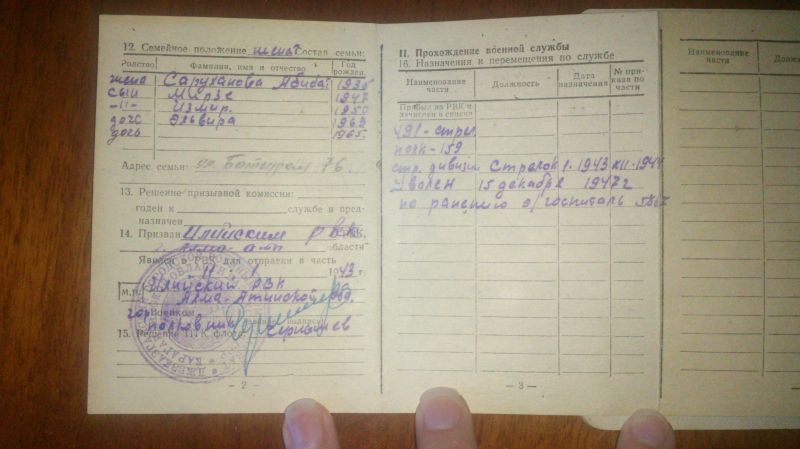 12. Семейное положение женат Состав семьи:
Родство
Фамилия, имя и отчество
Год рожден.
жена Саруханова Абибат 1935
сын Мирзе 1947
-"- Измир. 1959
дочь Эльвира 1963
дочь 1965.
Адрес семьи: ул. 76
13. Решение призывной комиссии:
годен к службе и пред-
назначен
14. Призван Илийским РВК,
Алма-аты области
Явился в РВК для отправки в часть
11 1 1943 г.
М.П. Илийский РВК
Алма-Атинской обд.
горвоенком
полковник
15. Решение
– 2 –
II. Прохождение военной службы
16. Назначения и перемещения по службе
Наименование части
Должность
Дата назначения
№ приказа по части
Прибыл из РВК и зачислен в списки
491-стрел.
полк-159
стр. дивизии Стрелок 1. 1943 XII-1944
Уволен 15 декабря 1947 г
по ранению э/госпиталь
– 3 –